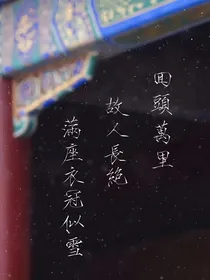 回頭萬里
故人長絶
滿座衣冠似雪